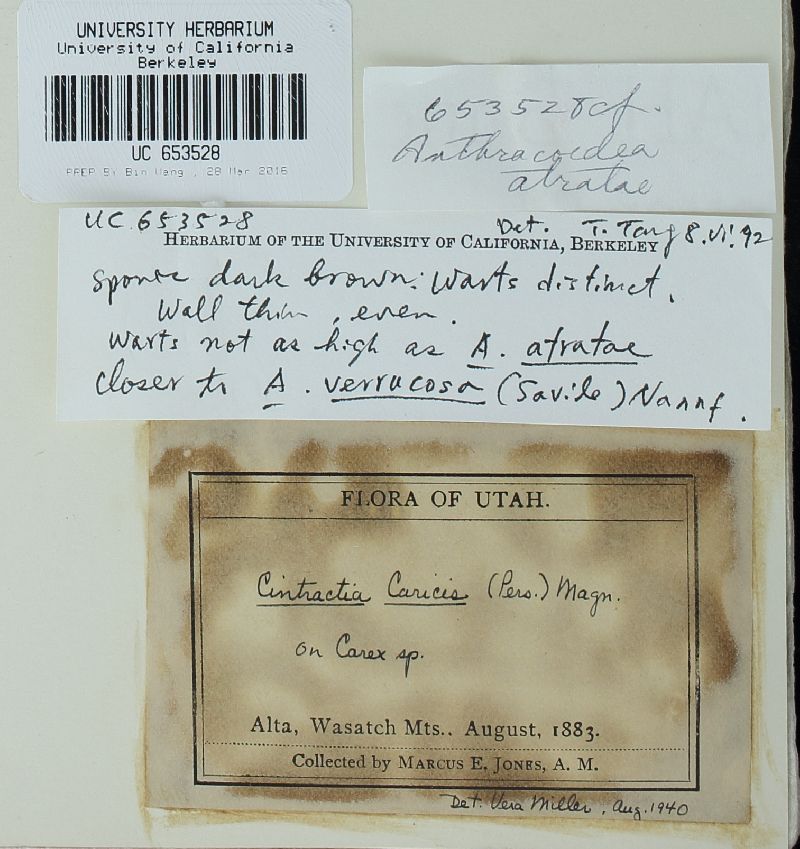 UNIVERSITY HERBARIUM
University of California
Berkeley
UC 653528
PREP BY Bin Wang , 28 Mar 2016
653528 cf.
Anthracoidea
atratae
UC 653528 Det. T. Tang 8.VI.92
HERBARIUM OF THE UNIVERSITY OF CALIFORNIA, BERKELEY
spores dark brown: Warts distinct.
Wall thin, even.
Warts not as high as A. atratae
closer to A. verrucosa (Savile) Nannf.
FLORA OF UTAH.
Cintractia Caricis (Pers.) Magn.
on Carex sp.
Alta, Wasatch Mts.. August, 1883.
Collected by MARCUS E. JONES, A. M.
Det. Vera Miller, Aug. 1940